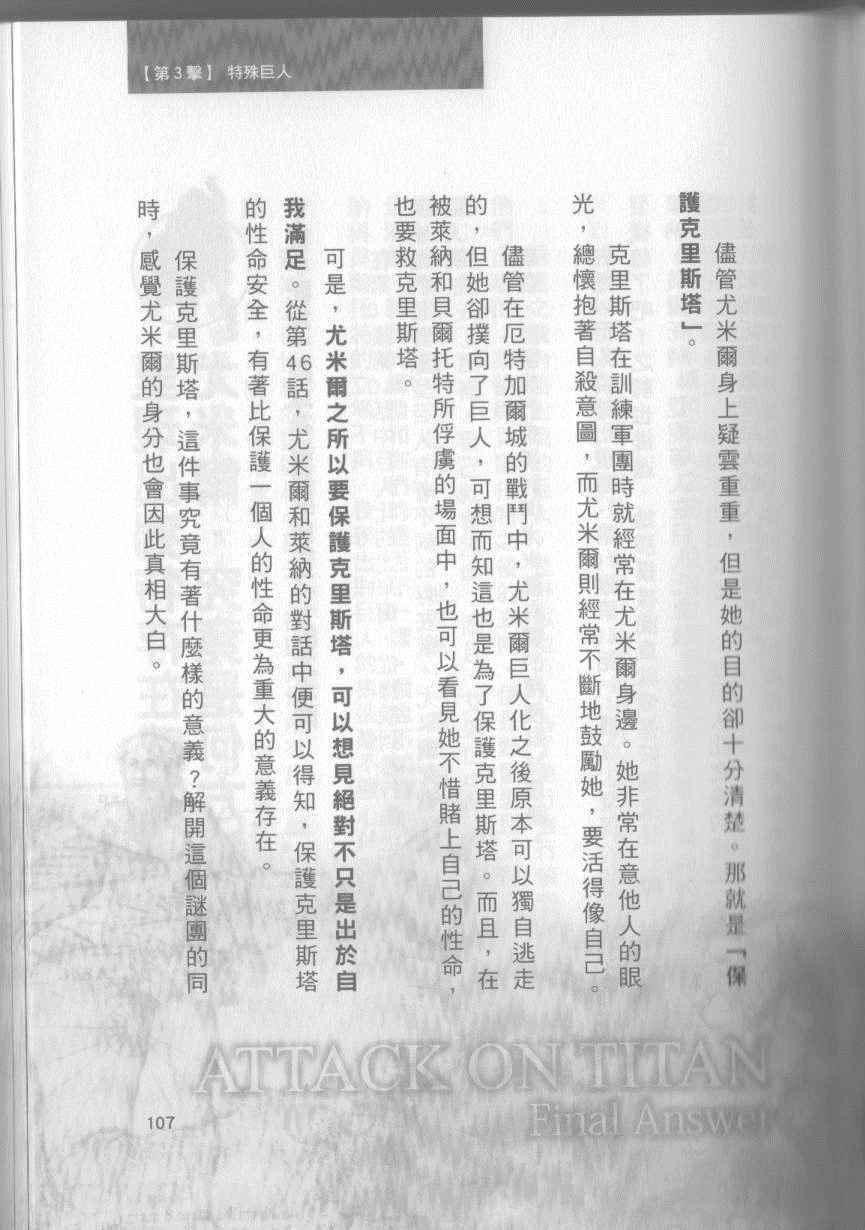 【第3擊】 特殊巨人
儘管尤米爾身上疑雲重重，但是她的目的卻十分清楚。那就是「保
護克里斯塔」。
克里斯塔在訓練軍團時就經常在尤米爾身邊。她非常在意他人的眼
光，總懷抱著自殺意圖，而尤米爾則經常不斷地鼓勵她，要活得像自己。
儘管在厄特加爾城的戰鬥中，尤米爾巨人化之後原本可以獨自逃走
的，但她卻撲向了巨人，可想而知這也是為了保護克里斯塔。而且，在
被萊納和貝爾托特所俘虜的場面中，也可以看見她不惜賭上自己的性命，
也要救克里斯塔。
可是，尤米爾之所以要保護克里斯塔，可以想見絕對不只是出於自
我滿足。從第46話，尤米爾和萊納的對話中便可以得知，保護克里斯塔
的性命安全，有著比保護一個人的性命更為重大的意義存在。
保護克里斯塔，這件事究竟有著什麼樣的意義？解開這個謎團的同
時，感覺尤米爾的身分也會因此真相大白。
ATTACK ON TITAN
Final Answer
107